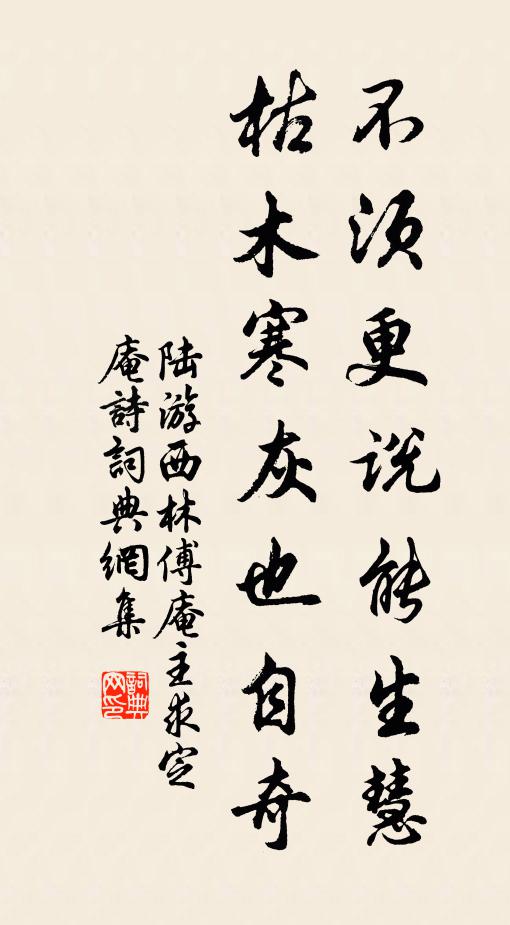 不须更说能生慧
枯木寒灰也自奇
陆游西林傅庵主求定
庵詩詞典網集
詞典
网印